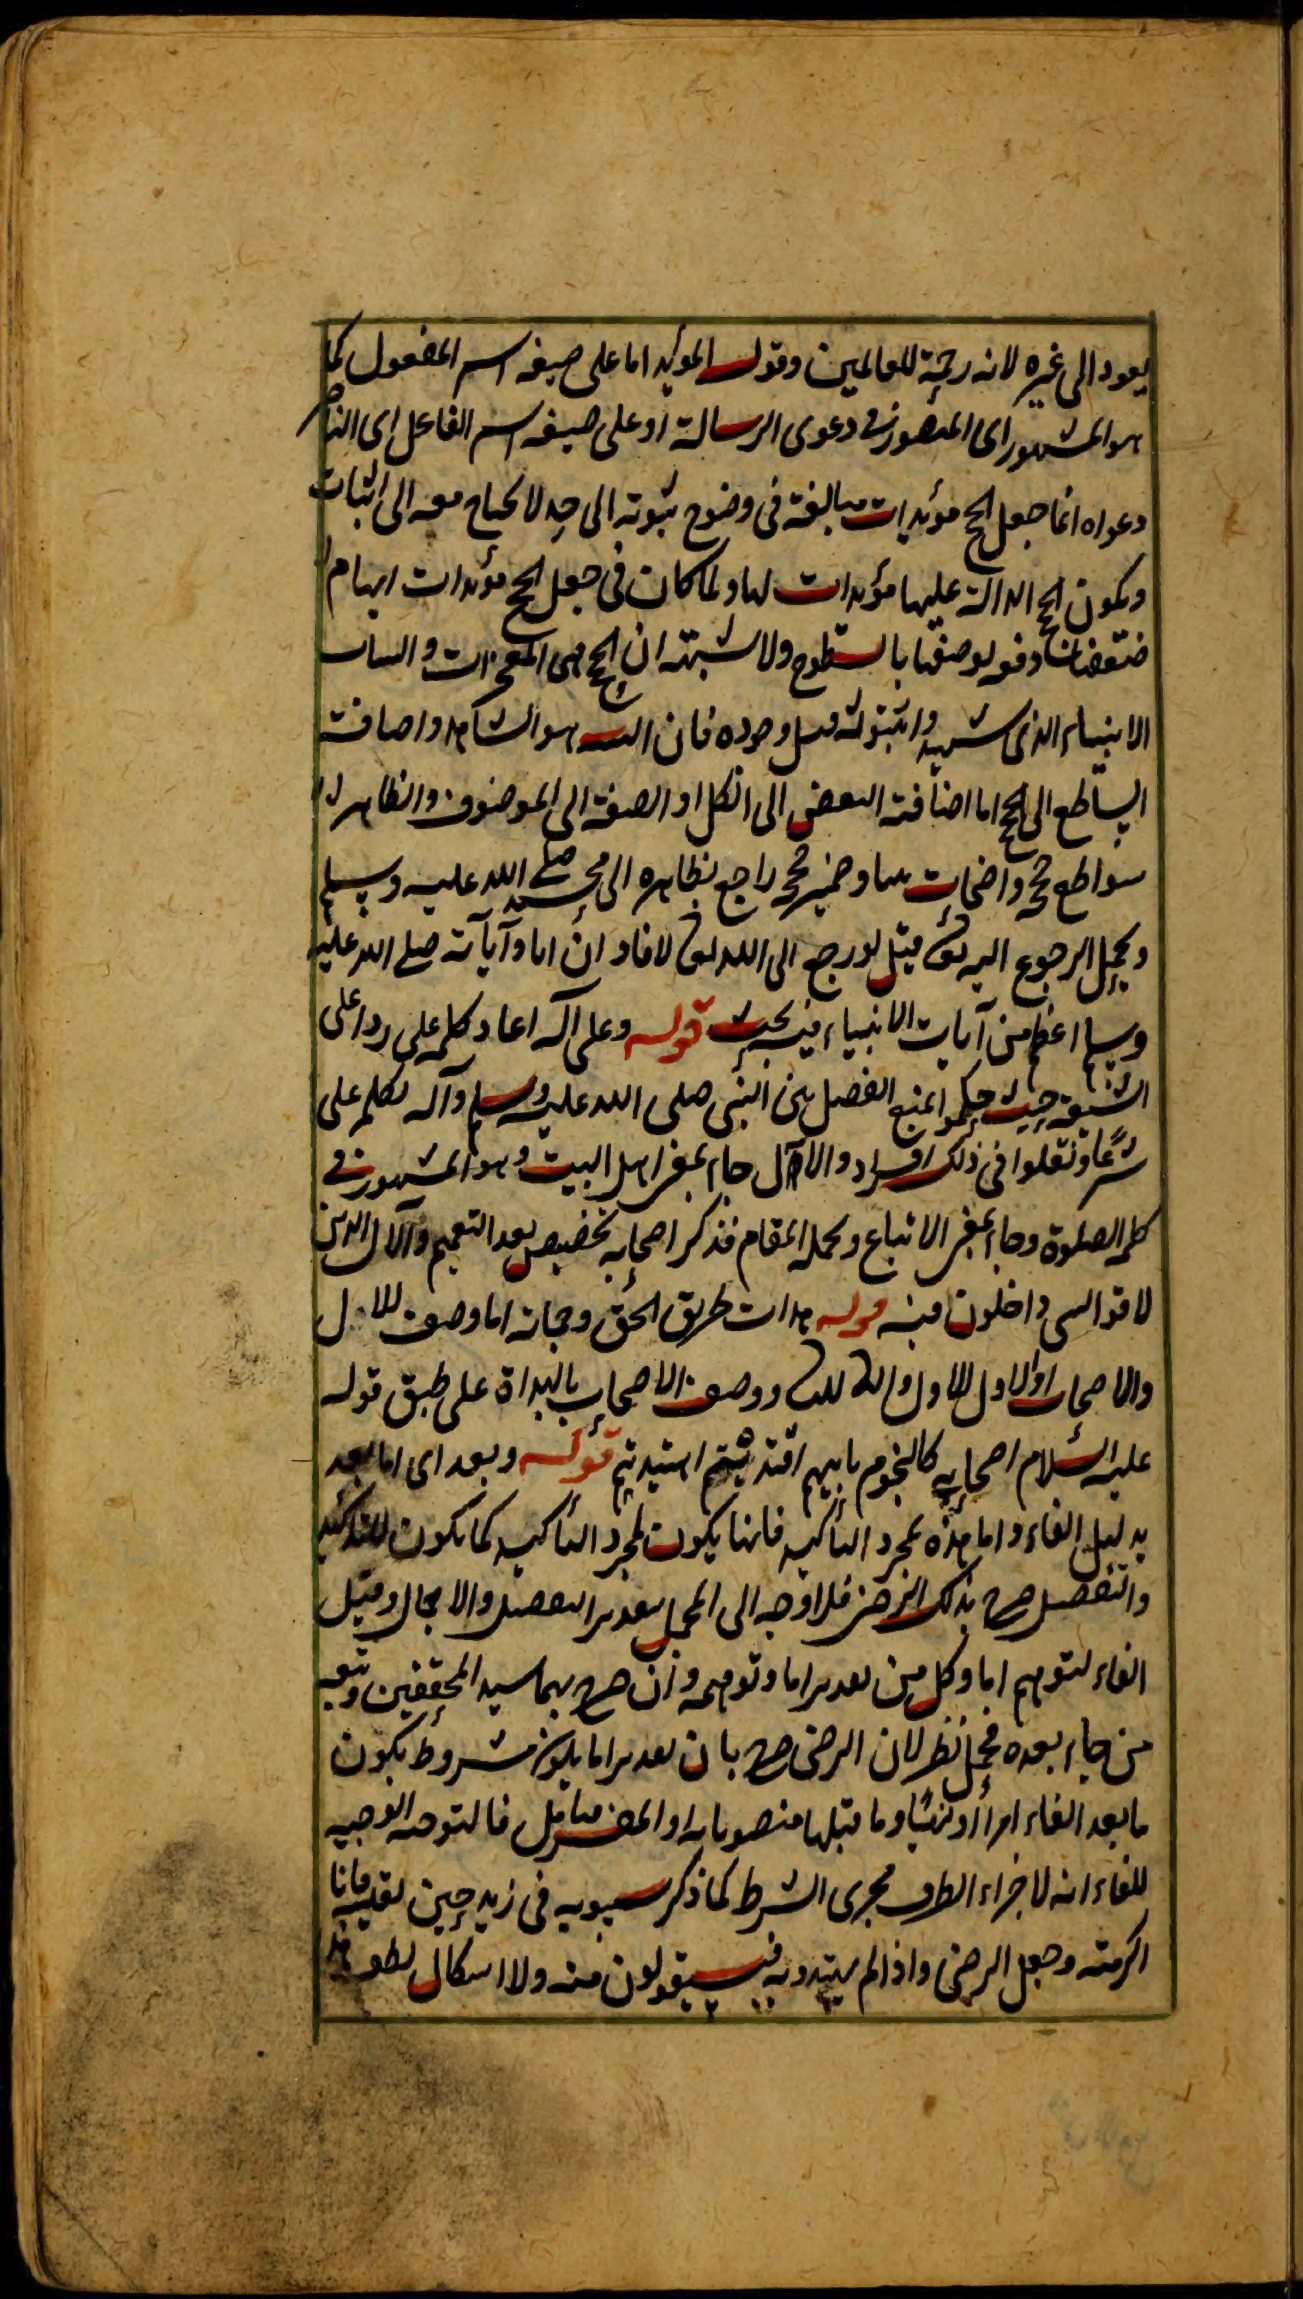 يعود الى غيره لانه رحمة للعالمين وقوله المؤيد اما على صيغه اسم المفعول كما
هو المشهور اى المنصور فى دعوى الرسالة او على صيغه اسم الفاعل اى الناصر
دعواه انما جعل الحج مؤيدات مبالغة فى وضوح ثبوته الى حد لا يحتاج معه الى اثبات
ويكون الحج الدالة عليها مؤيدات لها ولما كان فى جعل الحج مؤيدات ايهام
دفعه بوصفها بالسطوع ولا شبهة ان الحج هى المعجزات والبينات
الانبياء الذى شهدوا بنبوته قبل وجوده فان البينة هو الشاهد واضافة
الساطع الى الحج اما اضافة البعض الى الكل او الصفة الى الموصوف والظاهر
سواطع حججه واضحات وضمير حججه راجع بظاهره الى محمد صلى الله عليه وسلم
ويحتمل الرجوع اليه تعالى قيل لو رجع الى الله لافاد ان آياته صلى الله عليه
وسلم اعظم من آيات الانبياء فيه بحث قوله وعلى آله اعاد كلمه على ردا على
الشيعة حيث حكموا بمنع الفصل بين النبى صلى الله عليه وسلم وآله بكلمه على
شرعا ونقلوا فى ذلك والآل جاء بمعنى اهل البيت وهو المشهور فى
كلمه الصلوة وجاء بمعنى الاتباع ويحمله المقام فذكر اصحابه تخصيص بعد التعميم والآل الذين
داخلون فيه قوله هداة طريق الحق وحماته اما وصف للآل
والاصحاب او الاول للاول والثانى للثانى ووصف الاصحاب بالهداة على طبق قوله
عليه السلام اصحابى كالنجوم بايهم اقتديتم اهتديتم قوله وبعد اى اما بعد
بدليل الفاء واما هذه لمجرد التأكيد فانها يكون لمجرد التأكيد كما يكون للتأكيد
والتفصيل صرح بذلك الرضى فلا وجه الى المحمل بعد التفصيل والاجمال وقيل
الفاء لتوهم اما وكل من تقدير اما وتوهمه وان صرح بهما سيد المحققين وتبعه
من جاء بعده محل نظر لان الرضى صرح بان تقدير اما يكون مشروط بكون
ما بعد الفاء امرا او نهيا وما قبلها منصوبا به او فالتوجه الوجيه
للفاء انه لاجراء الظرف مجرى الشرط كما ذكر سيبويه فى زيد حين لقيته فانا
اكرمته وجعل الرضى واذ لم يهتدوا به فسيقولون منه ولا اشكال